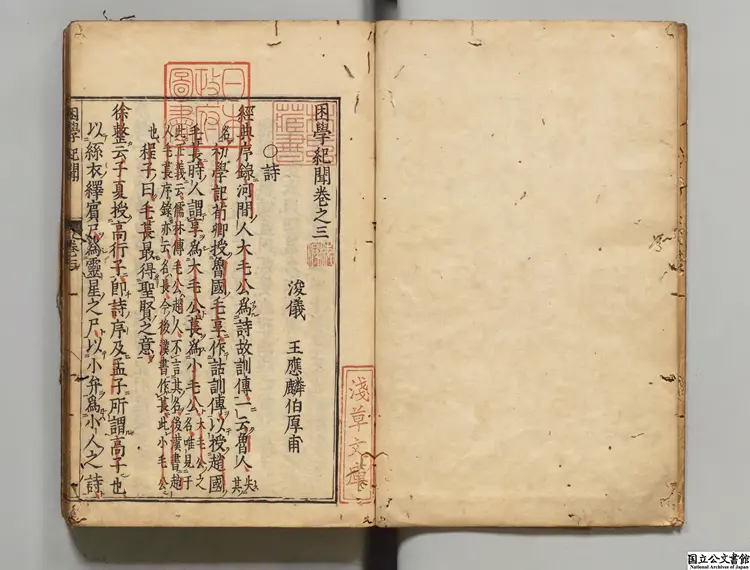 困學紀聞卷之三
浚儀 王應麟伯厚甫
○詩
經典序錄河間人大毛公為詩故訓傳一云魯人失其
名初學記荀卿授魯國毛亨作詁訓傳以授趙國
毛萇時人謂亨為大毛公萇為小毛公大毛公之名唯見于
此正義云儒林傳毛公趙人不言其名後漢書趙
人毛萇序錄亦云名長今後漢書作萇此小毛公
也程子曰毛萇最得聖賢之意
徐整云子夏授高行子即詩序及孟子所謂高子也
以絲衣繹賓尸為靈星之尸以小弁為小人之詩
困學紀聞 卷三
日本政府圖書
淺草文庫
国立公文書館
National Archives of Japan